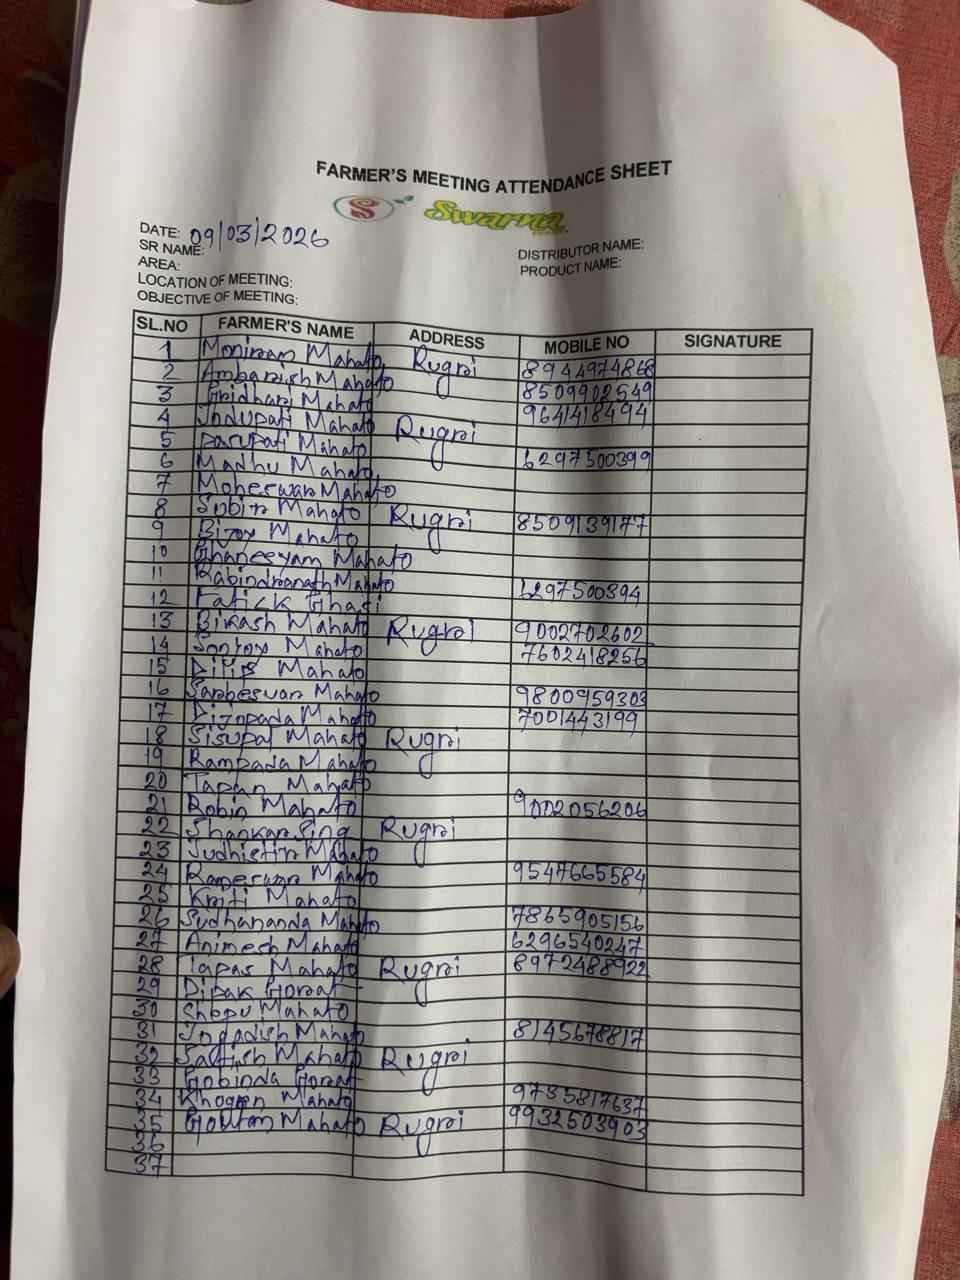 FARMER'S MEETING ATTENDANCE SHEET
S Swarna
DATE: 09/03/2026
SR NAME:
DISTRIBUTOR NAME:
AREA:
PRODUCT NAME:
LOCATION OF MEETING:
OBJECTIVE OF MEETING:
SL.NO FARMER'S NAME ADDRESS MOBILE NO SIGNATURE
1 Moniram Mahato Rugri 8944974868
2 Ambarish Mahato 8509902549
3 Gridhari Mahato 9641418494
4 Jadupati Mahato Rugri
5 Parupati Mahato 6297500399
6 Madhu Mahato
7 Moheswar Mahato
8 Subir Mahato Rugri 8509139177
9 Bijoy Mahato
10 Ghanesyam Mahato
11 Rabindranath Mahato 6297500394
12 Fatick Ghasi
13 Bikash Mahato Rugri 9002702602
14 Mahato 7602418256
15 Dilip Mahato
16 Sarbeswar Mahato 9800959303
17 Dijopada Mahato 7001443199
18 Sisupal Mahato Rugri
19 Rampada Mahato
20 Tapan Mahato
21 Robin Mahato 9002056206
22 Shankar Sing Rugri
23 Mahato
24 Rameswar Mahato 9547665584
25 Kriti Mahato
26 Sudhananda Mahato 7865905156
27 Animesh Mahato 6296540247
28 Tapas Mahato Rugri 8972488922
29 Dipak Gorat
30 Mahato
31 Jagadish Mahato 8145678817
32 Satish Mahato Rugri
33 Gobinda Gorat
34 Khogen Mahato 9735817637
35 Goutam Mahato Rugri 9932503903
36
37